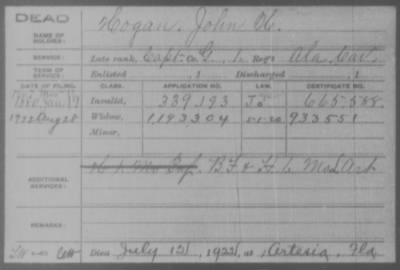 DEAD
Hogan, John H.
NAME OF SOLDIER:
SERVICE: Late rank, Capt. Co. G, 1. Reg't Ala. Cav.
TERM OF SERVICE: Enlisted , 1 Discharged , 1
DATE OF FILING. CLASS. APPLICATION NO. LAW. CERTIFICATE NO.
1880 Jan. 19 Invalid, 339,193 665.588
1922 Aug 28 Widow, 1193304 933551
Minor,
ADDITIONAL SERVICES: Mo Inf. B, F & H 1. Mo. L. Art
REMARKS:
Died July 12, 1922, at Artesia, Fla